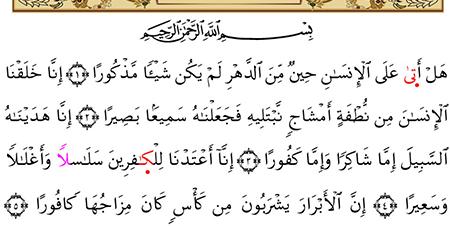 بِسْمِ اللَّهِ الرَّحْمَٰنِ الرَّحِيمِ
هَلْ أَتَىٰ عَلَى ٱلْإِنسَـٰنِ حِينٌ مِّنَ ٱلدَّهْرِ لَمْ يَكُن شَيْـًٔا مَّذْكُورًا ﴿١﴾ إِنَّا خَلَقْنَا
ٱلْإِنسَـٰنَ مِن نُّطْفَةٍ أَمْشَاجٍ نَّبْتَلِيهِ فَجَعَلْنَـٰهُ سَمِيعًۢا بَصِيرًا ﴿٢﴾ إِنَّا هَدَيْنَـٰهُ
ٱلسَّبِيلَ إِمَّا شَاكِرًا وَإِمَّا كَفُورًا ﴿٣﴾ إِنَّآ أَعْتَدْنَا لِلْكَـٰفِرِينَ سَلَـٰسِلًا وَأَغْلَـٰلًا
وَسَعِيرًا ﴿٤﴾ إِنَّ ٱلْأَبْرَارَ يَشْرَبُونَ مِن كَأْسٍ كَانَ مِزَاجُهَا كَافُورًا ﴿٥﴾